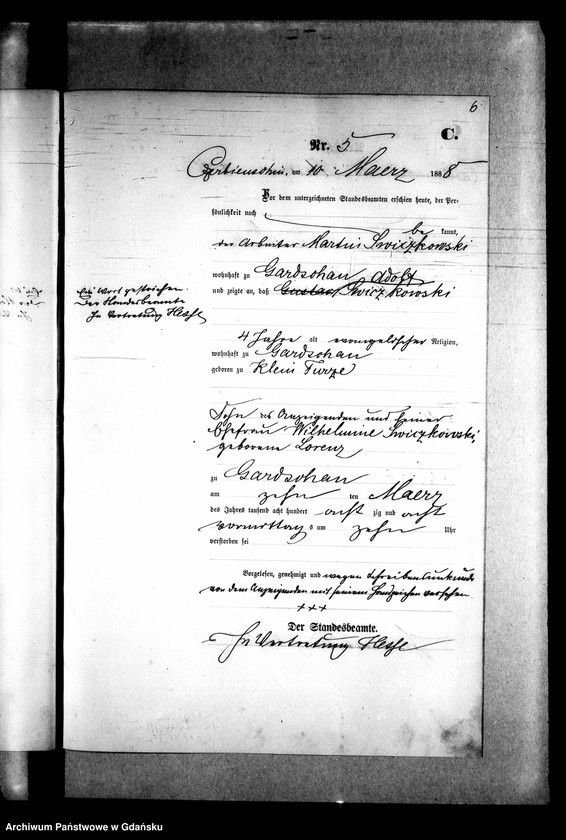 6
C.
Nr. 5
Czerbienschin, am 10 Maerz 1888
Vor dem unterzeichneten Standesbeamten erschien heute, der Per-
sönlichkeit nach
be kannt,
der Arbeiter Martin Swiczkowski
wohnhaft zu Gardschau
Adolf
und zeigte an, daß Gustav Swiczkowski
Ein Wort gestrichen.
Der Standesbeamte
In Vertretung
4 Jahre alt evangelischer Religion,
wohnhaft zu Gardschau
geboren zu Klein Turze
Sohn des Anzeigenden und seiner
Ehefrau Wilhelmine Swiczkowski,
geborene Lorenz
zu Gardschau
am zehn ten Maerz
des Jahres tausend acht hundert acht zig und acht
vormittag s um zehn Uhr
verstorben sei
Vorgelesen, genehmigt und wegen Schreibensunkunde
von dem Anzeigenden mit seinem Handzeichen versehen
+++
Der Standesbeamte.
In Vertretung
Archiwum Państwowe w Gdańsku